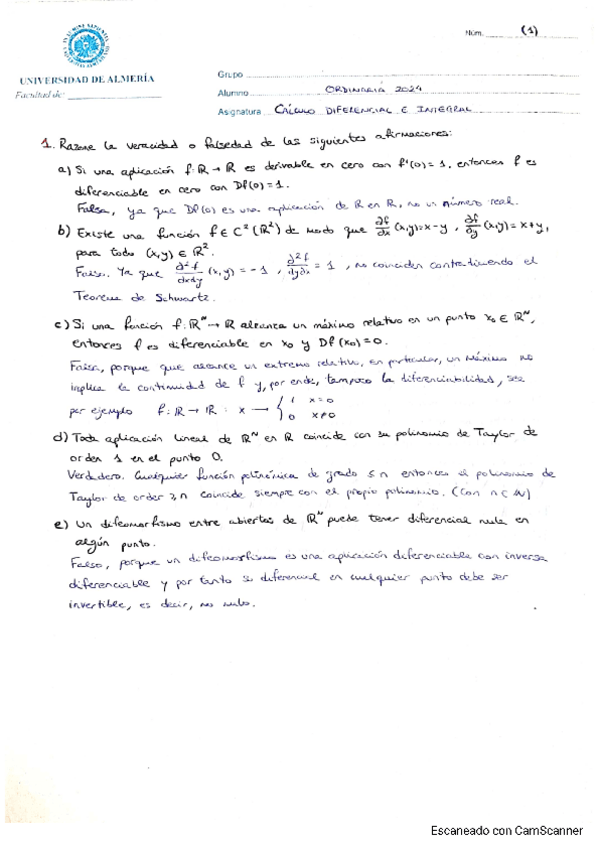 Núm. (1)
UNIVERSIDAD DE ALMERÍA
Facultad de:
Grupo
Alumno ORDINARIA 2024
Asignatura CÁLCULO DIFERENCIAL E INTEGRAL
1. Razone la veracidad o falsedad de las siguientes afirmaciones:
a) Si una aplicación f: ℝ → ℝ es derivable en cero con f'(0)=1, entonces f es
diferenciable en cero con Df(0)=1.
Falsa, ya que Df(0) es una aplicación de ℝ en ℝ, no un número real.
b) Existe una función f ∈ C²(ℝ²) de modo que ∂f/∂x (x,y)=x-y, ∂f/∂y (x,y)=x+y,
para todo (x,y) ∈ ℝ².
Falso. Ya que ∂²f/∂x∂y (x,y) = -1, ∂²f/∂y∂x = 1, no coinciden contradiciendo el
Teorema de Schwartz.
c) Si una función f: ℝᴺ → ℝ alcanza un máximo relativo en un punto x₀ ∈ ℝᴺ,
entonces f es diferenciable en x₀ y Df(x₀)=0.
Falsa, porque que alcance un extremo relativo, en particular, un máximo no
implica la continuidad de f y, por ende, tampoco la diferenciabilidad, sea
por ejemplo f: ℝ → ℝ : x → { 1 x=0
0 x≠0
d) Toda aplicación lineal de ℝᴺ en ℝ coincide con su polinomio de Taylor de
orden 1 en el punto 0.
Verdadero. Cualquier función polinómica de grado ≤ n entonces el polinomio de
Taylor de orden ≥ n coincide siempre con el propio polinomio. (Con n ∈ ℕ)
e) Un difeomorfismo entre abiertos de ℝᴺ puede tener diferencial nula en
algún punto.
Falso, porque un difeomorfismo es una aplicación diferenciable con inversa
diferenciable y por tanto su diferencial en cualquier punto debe ser
invertible, es decir, no nulo.
Escaneado con CamScanner